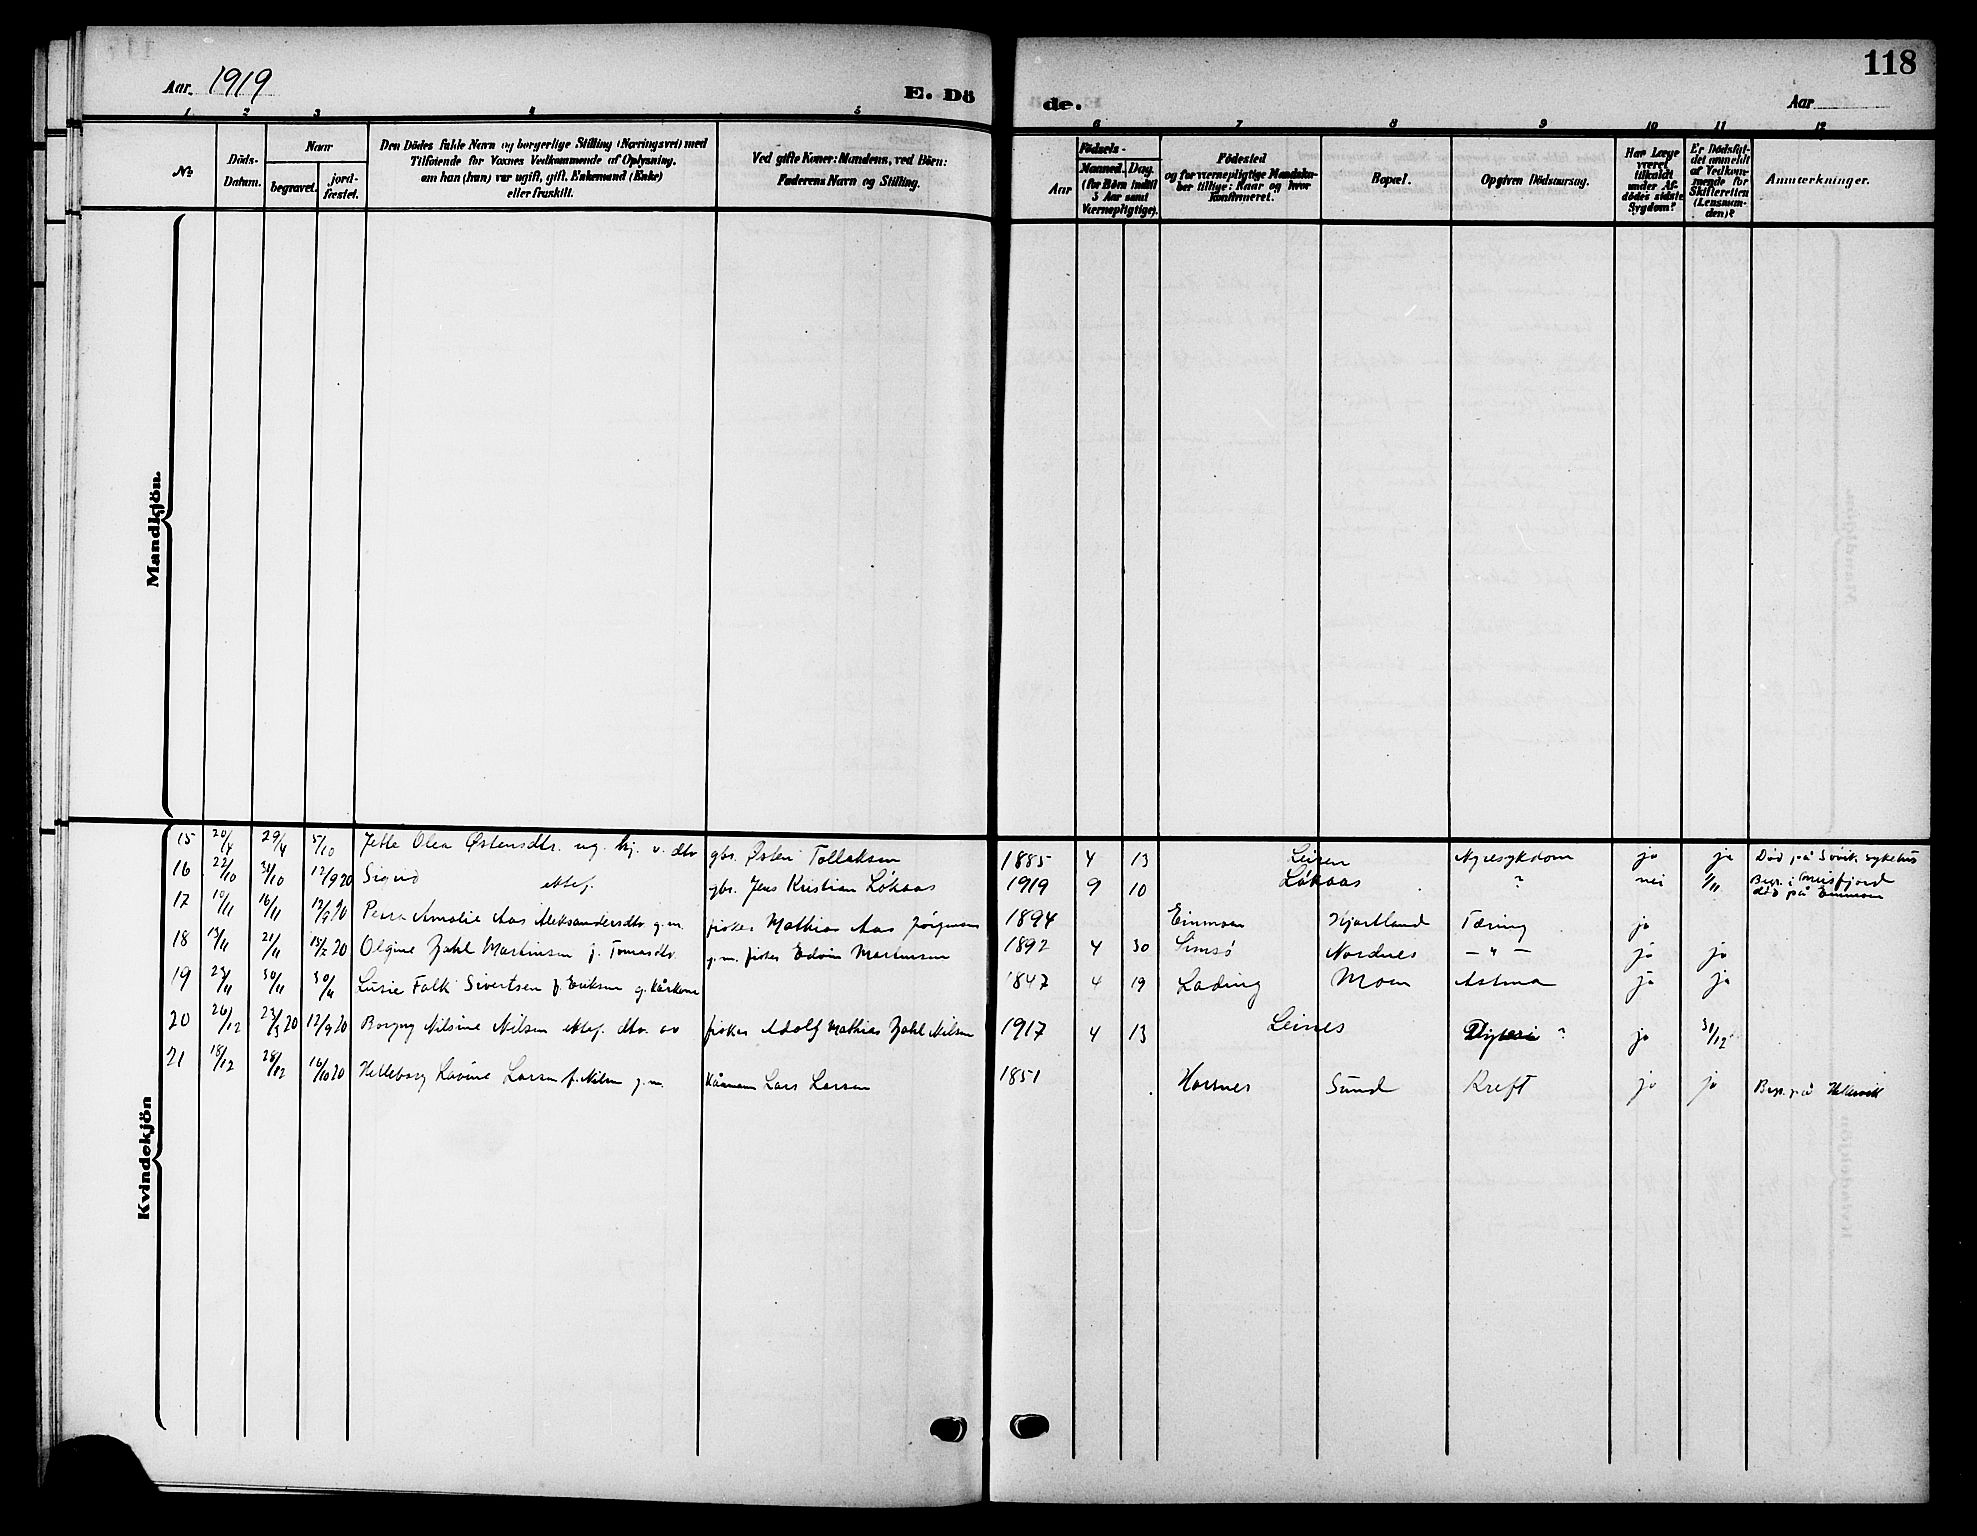 118
Aar 1919
E. Dö
de.
Aar
1 2 3 4 5
6 7 8 9 10 11 12
No
Döds-Datum.
Naar
begravet.
jord-fæstet.
Den Dödes fulde Navn og borgerlige Stilling (Næringsvei) med
Tilföiende for Voxnes Vedkommende af Oplysning,
om han (hun) var ugift, gift, Enkemand (Enke)
eller fraskilt.
Ved gifte Koner: Mandens, ved Börn:
Faderens Navn og Stilling.
Födsels-
Aar
Maaned. Dag.
(for Börn indtil
5 Aar samt
Værnepligtige).
Födested
og for værnepligtige Mandskaber tillige: Naar og hvor
konfirmeret.
Bopæl.
Opgiven Dödsaarsag.
Har Læge
været
tilkaldt
under Afdödes sidste
Sygdom?
Er Dödsfaldet anmeldt
af Vedkommende for
Skifteretten
(Lensmanden)?
Anmærkninger.
Mandkjön.
Kvindekjön
15 20/4 29/4 5/10 Jette Olea Østensdtr. ug. hj. v. dtr gbr. Østen Tollaksen 1885 4 13 Leinen Nyresykdom ja ja Død på Sykehus
16 22/10 31/10 12/9 20 Sigrid ektef. gbr. Jens Kristian Løkaas 1919 9 10 Løkaas ? nei 1/11 Begr. i Misfjord
død på Einmoen
17 10/11 16/11 12/9 20 Petra Amalie Aas Aleksandersdtr g.m. fisker Mathias Aas Jørgensen 1894 Einmoen Hjartland Tæring ja
18 13/11 21/11 15/2 20 Olgine Zahl Martinsen f. Tomasdtr. g.m. fisker Edvin Martinsen 1892 4 30 Simsø Nordnes — " — ja ja
19 23/11 30/11 30/11 Lusie Falk Sivertsen f. Eriksen g. kårkone 1847 4 19 Lading Moen Astma ja ja
20 26/12 23/3 20 12/9 20 Borgny Nilsine Nilsen ektef. dtr. av fisker Adolf Mathias Zahl Nilsen 1917 4 13 Leines ? ja 31/12
21 18/12 28/12 16/10 20 Helleborg Lovine Larsen f. Nilsen g.m. Kårmann Lars Larsen 1851 Hornes Sund Kreft ja ja Begr. på Hellesvik